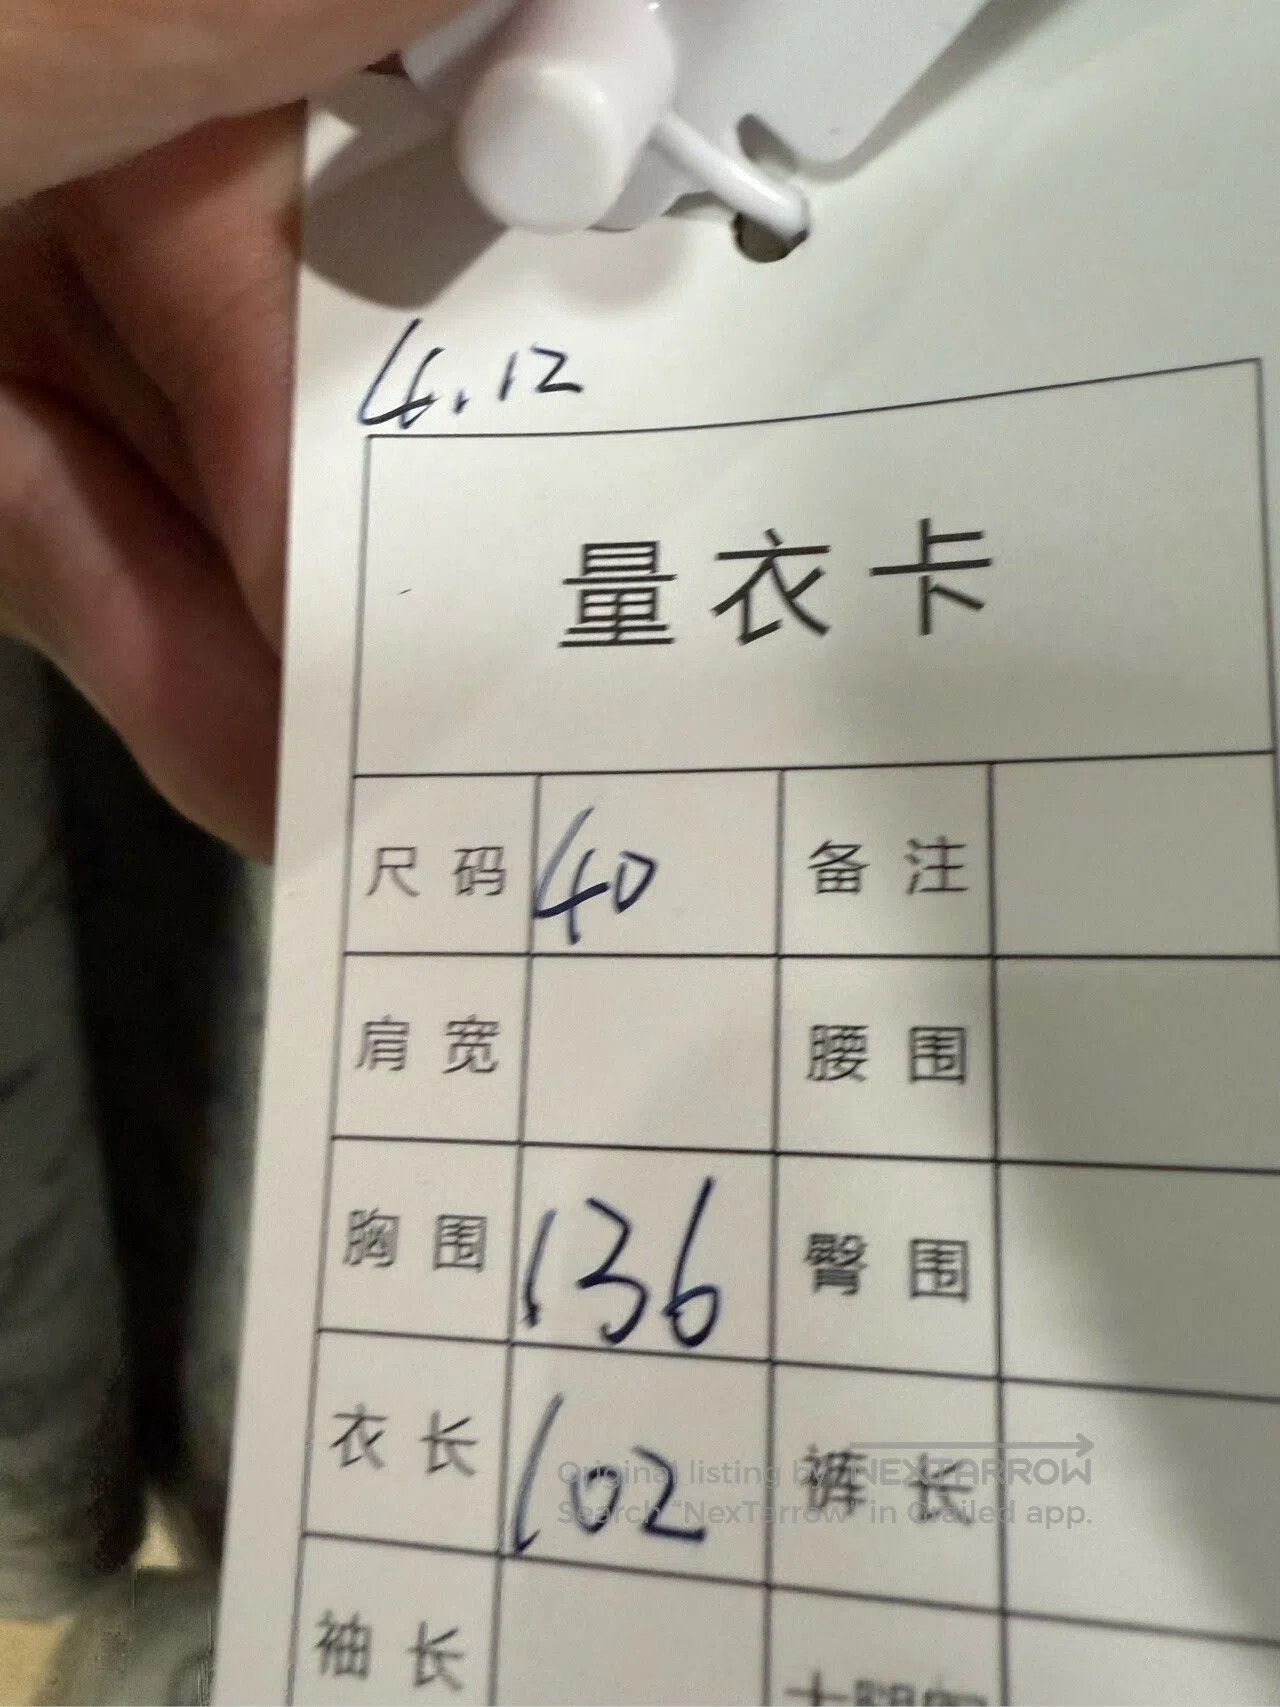 4.12
量衣卡
尺码 40 备注
肩宽 腰围
胸围 136 臀围
衣长 102 裤长
Original listing by NEXTARROW
Search "NexTarrow" in Grailed app.
袖长